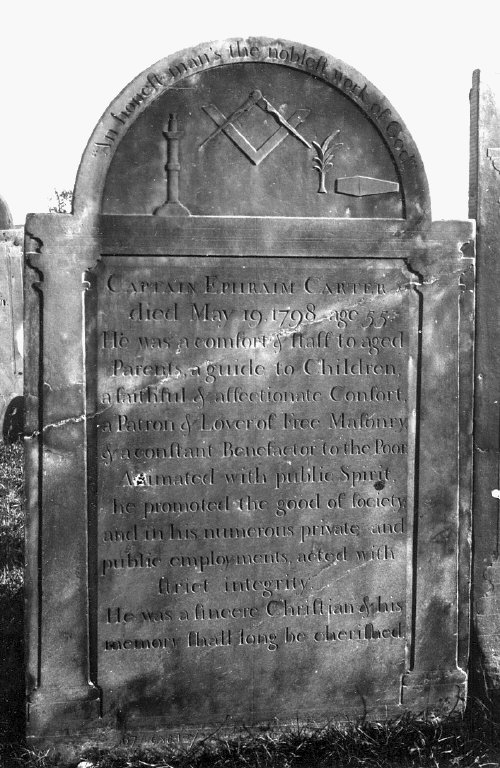 "An honeſt man's the nobleſt work of God"
CAPTAIN EPHRAIM CARTER
died May 19, 1798, age 55.
He was a comfort & ſtaff to aged
Parents, a guide to Children,
a faithful & affectionate Conſort,
a Patron & Lover of Free Maſonry
& a conſtant Benefactor to the Poor
Animated with public Spirit,
he promoted the good of ſociety,
and in his numerous private, and
public employments, acted with
ſtrict integrity.
He was a ſincere Chriſtian & his
memory ſhall long be cheriſhed.